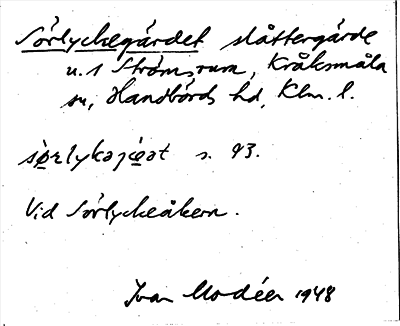 Sörlyckegärdet slåttergärde
u. 1 Strömsrum, Kråksmåla
sn, Handbörds hd, Klm. l.
s. 93.
Vid Sörlyckeåkern.
Ivar Modéer 1948